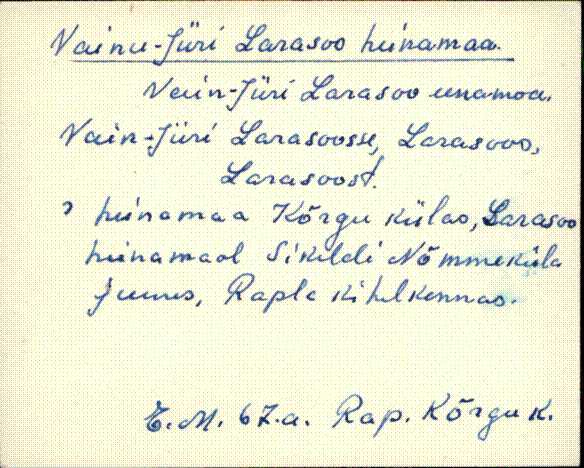 Vainu-Jüri Larasoo heinamaa.
Vain-Jüri Larasoo einamoa.
Vain-Jüri Larasoosse, Larasoos,
Larasoost.
heinamaa Kõrgu külas, Larasoo
heinamaal Sikeldi Nõmmeküla
juures, Rapla kihelkonnas.
E.M. 67.a. Rap. Kõrgu k.